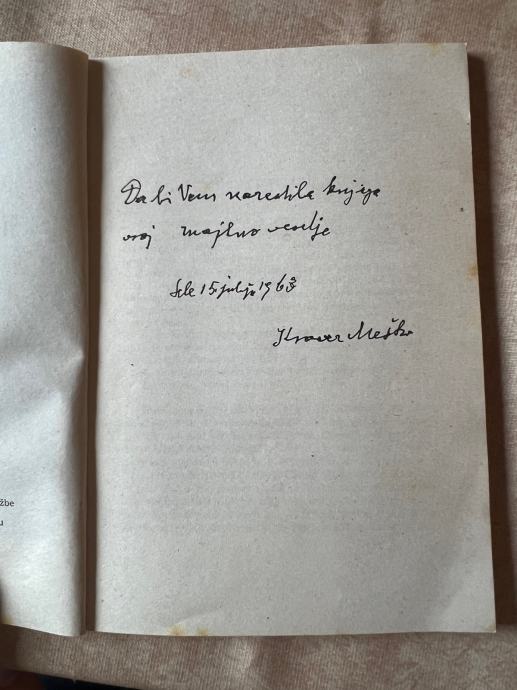 Da bi Vam naredila knjiga
vsaj majhno veselje
Sele 15. julija 1963
Ksaver Meško
žbe
u